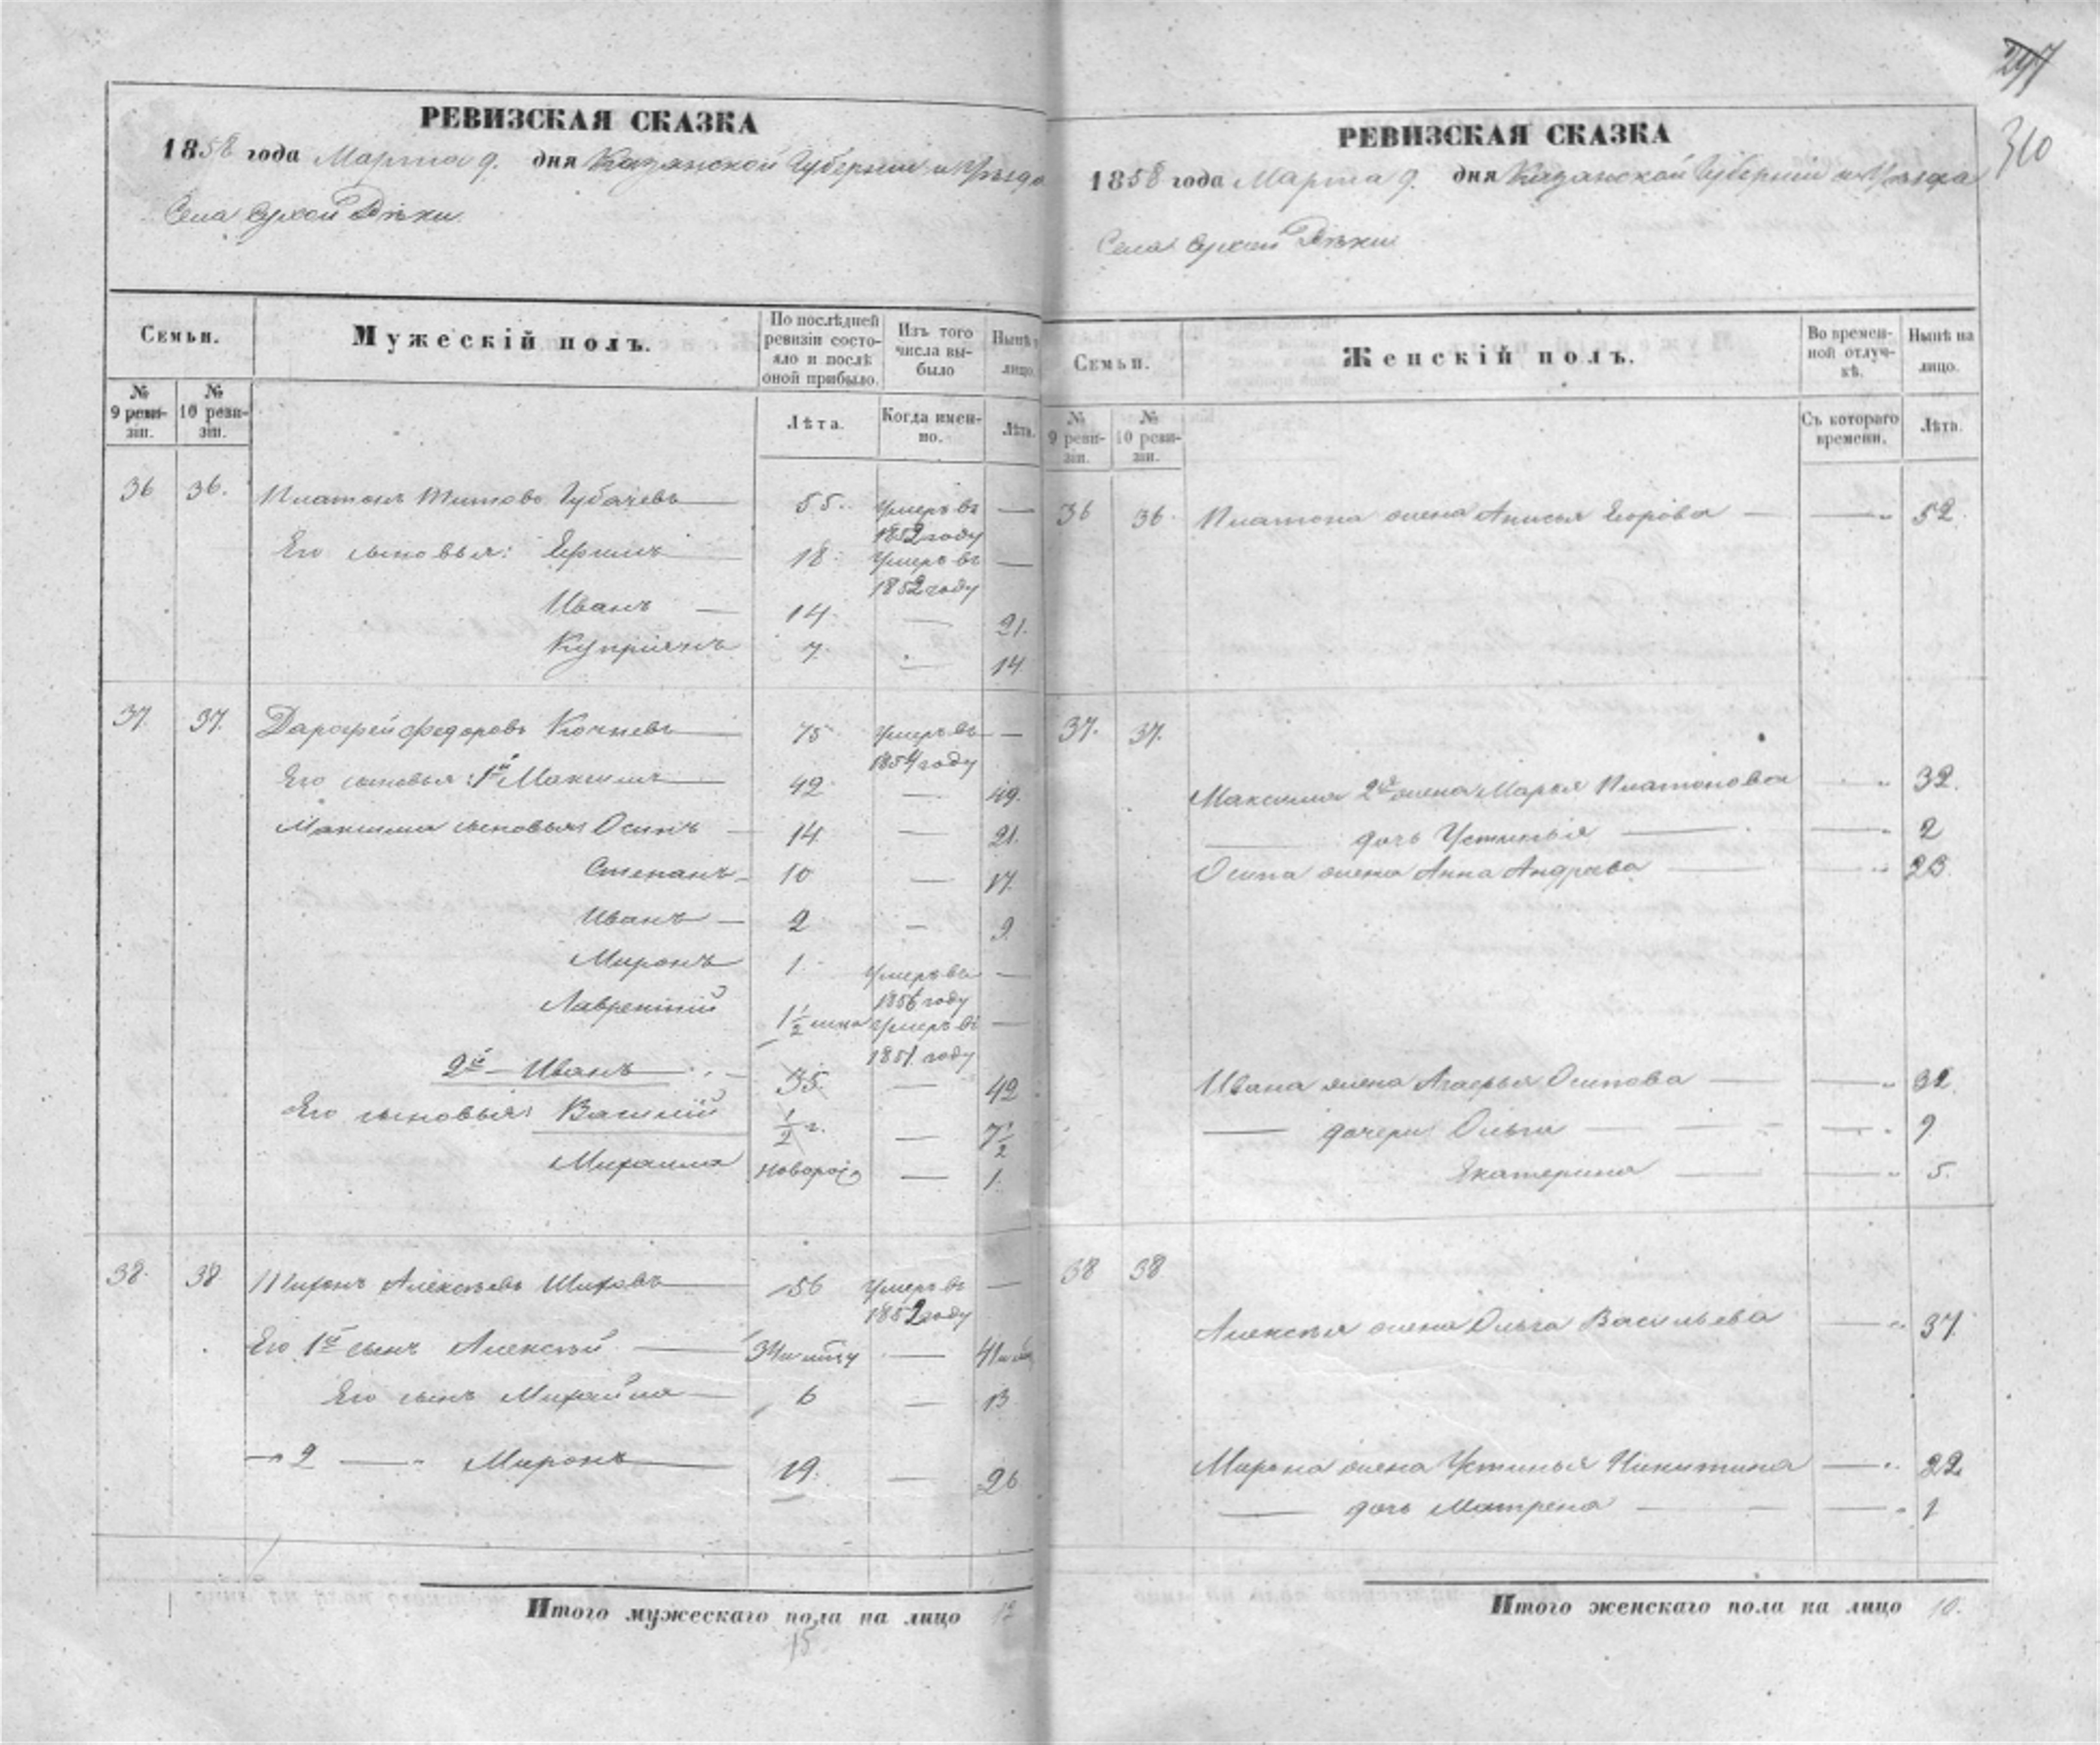 297
310
РЕВИЗСКАЯ СКАЗКА
1858 года Марта 9. дня Казанской Губернии и Уѣзда
Села Сухой Рѣки
Семьи.
Мужескій полъ.
По послѣдней ревизіи состояло и послѣ оной прибыло.
Изъ того числа выбыло
Нынѣ на лицо.
№ 9 ревизіи.
№ 10 ревизіи.
Лѣта.
Когда именно.
Лѣта.
36 36. Платонъ Титовъ Губачевъ 55. Умеръ въ 1852 году —
Его сыновья: Ефимъ 18. Умеръ въ 1852 году —
Иванъ — 14. — 21.
Купріянъ 7. — 14
37. 37. Дарофей Федоровъ Кочневъ 75 Умеръ въ 1854 году —
Его сыновья: 1й Максимъ 42 — 49.
Максима сыновья: Осипъ — 14. — 21.
Степанъ 10 — 17.
Иванъ — 2 — 9.
Миронъ 1. Умеръ въ 1856 году —
Лаврентій 1 1/2 Умеръ въ 1851. году —
2й — Иванъ 35. — 42
Его сыновья: Василій 1/2 г. — 7 1/2
Михаила новорож — 1.
38. 38 Алексѣевъ 56 Умеръ въ 1852 году —
Его 1й сынъ Алексѣй — 34 — 41
Его сынъ Михайла — 6 — 13
— 2 — " Миронъ 19. — 26
Итого мужескаго пола на лицо 12
15
РЕВИЗСКАЯ СКАЗКА
1858 года Марта 9. дня Казанской Губерніи и Уѣзда
Села Сухой Рѣки
Семьи.
Женскій полъ.
Во временной отлучкѣ.
Нынѣ на лицо.
№ 9 ревизіи.
№ 10 ревизіи.
Съ котораго времени.
Лѣта.
36 36. Платона жена Анисья Егорова — — 52.
37. 37.
Максима 2я жена Марья Платонова — 32.
— дочь Устинья — — 2
Осипа жена Анна Андреева — — 23
Ивана жена Агафья Осипова — — 32.
— дочери Ольга — — 9
Екатерина — — 5.
38 38
Алексѣя жена Ольга Васильева — 37.
Мирона жена Устинья Никитина — 22.
— дочь Матрена — — 1
Итого женскаго пола на лицо 10.